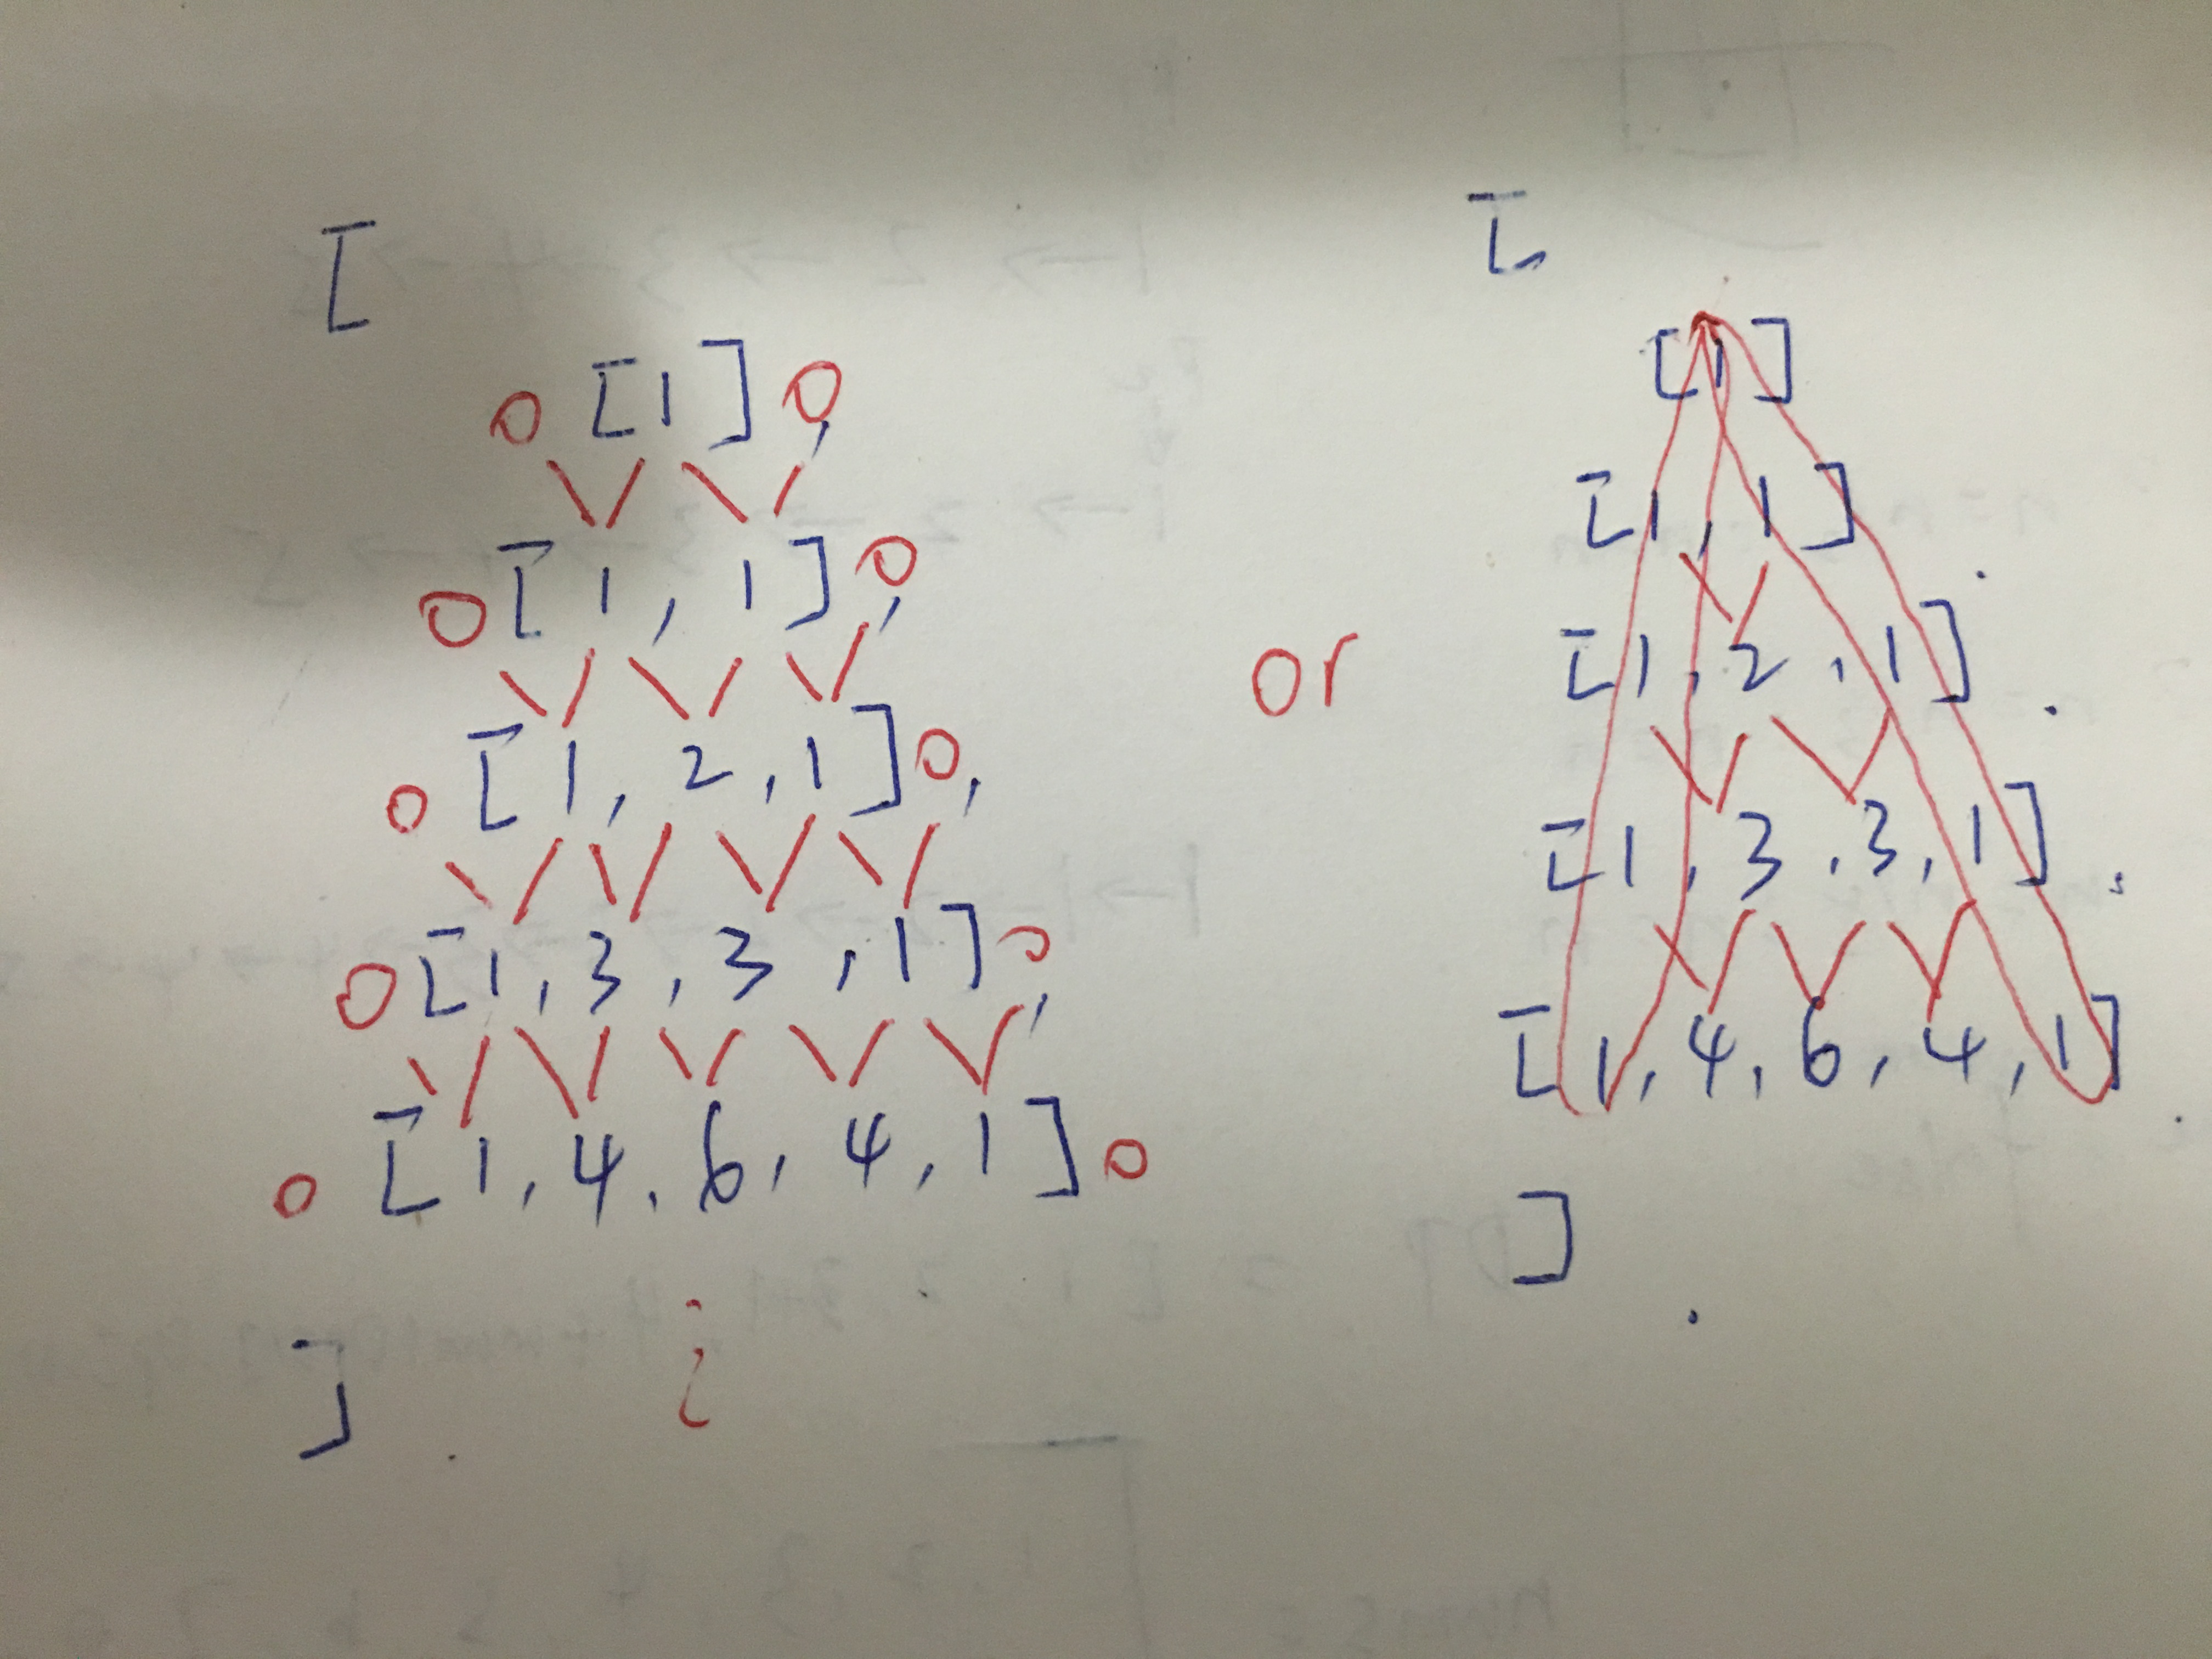 [
0 [1] , 0
0 [1, 1] , 0
0 [1, 2, 1] , 0
0 [1, 3, 3, 1] , 0
0 [1, 4, 6, 4, 1] 0
] ?
or
[
[1]
[1, 1]
[1, 2, 1]
[1, 3, 3, 1]
[1, 4, 6, 4, 1]
]